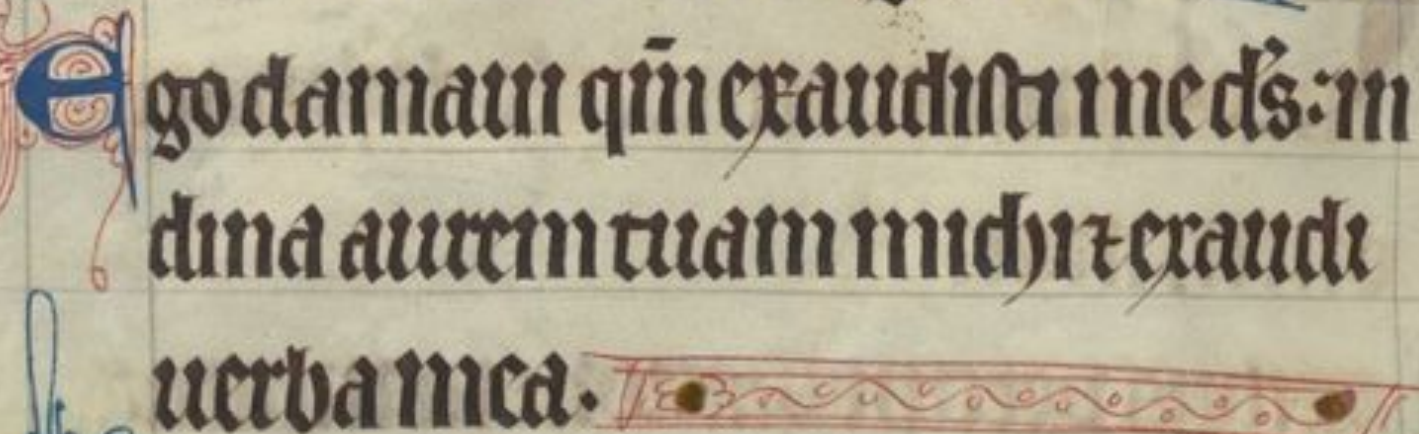 Ego clamaui qm̅ exaudisti me ds̉: in
clina aurem tuam michi ⁊ exaudi
uerba mea.